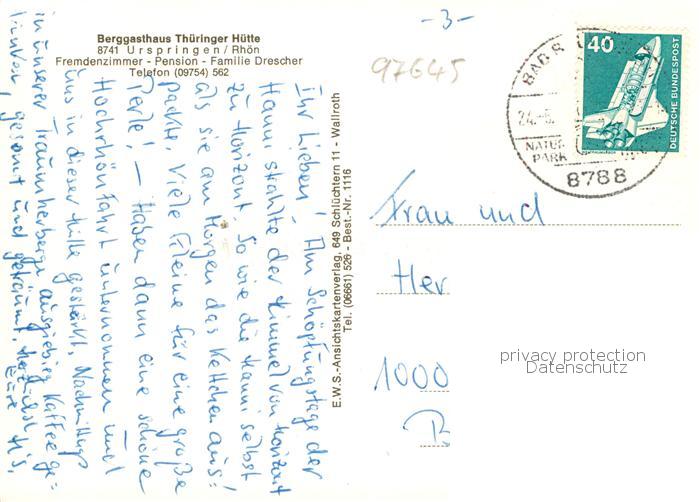 -3-
Berggasthaus Thüringer Hütte
8741 Urspringen / Rhön
Fremdenzimmer - Pension - Familie Drescher
Telefon (09754) 562
97645
40
DEUTSCHE BUNDESPOST
BAD
24.-5.
NATUR
PARK
8788
Ihr Lieben! Am Schöpfungstage der
Hanni strahlte der Himmel von Horizont
zu Horizont. So wie die Hanni selbst
als sie am Morgen das Kettchen aus=
packte. Viele kleine für eine große
Perle! — Haben dann eine schöne
Hochrhönfahrt unternommen und
uns in dieser Hütte gestärkt. Nachmittags
in unserer Traumherberge ausgiebig Kaffee ge=
trunken, gesonnt und geträumt. Herzlichst
Eure H's.
E.W.S.-Ansichtskartenverlag, 649 Schlüchtern 11 - Wallroth
Tel. (06661) 526 - Best.-Nr. 1116
Frau und
Her
1000
B
privacy protection
Datenschutz